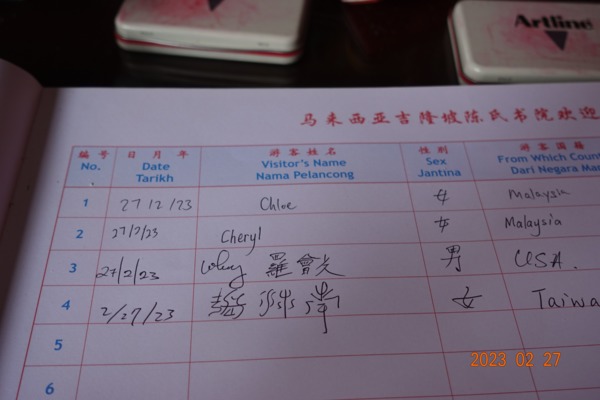 Artline
马来西亚吉隆坡陈氏书院欢迎
编号 日月年 游客姓名 性别 游客国籍
No. Date Visitor's Name Sex From Which Coun
Tarikh Nama Pelancong Jantina Dari Negara Ma
1 27/2/23 Chloe 女 Malaysia
2 27/2/23 Cheryl 女 Malaysia
3 27/2/23 羅會 男 USA.
4 2/27/23 女 Taiwa
5
6
2023 02 27